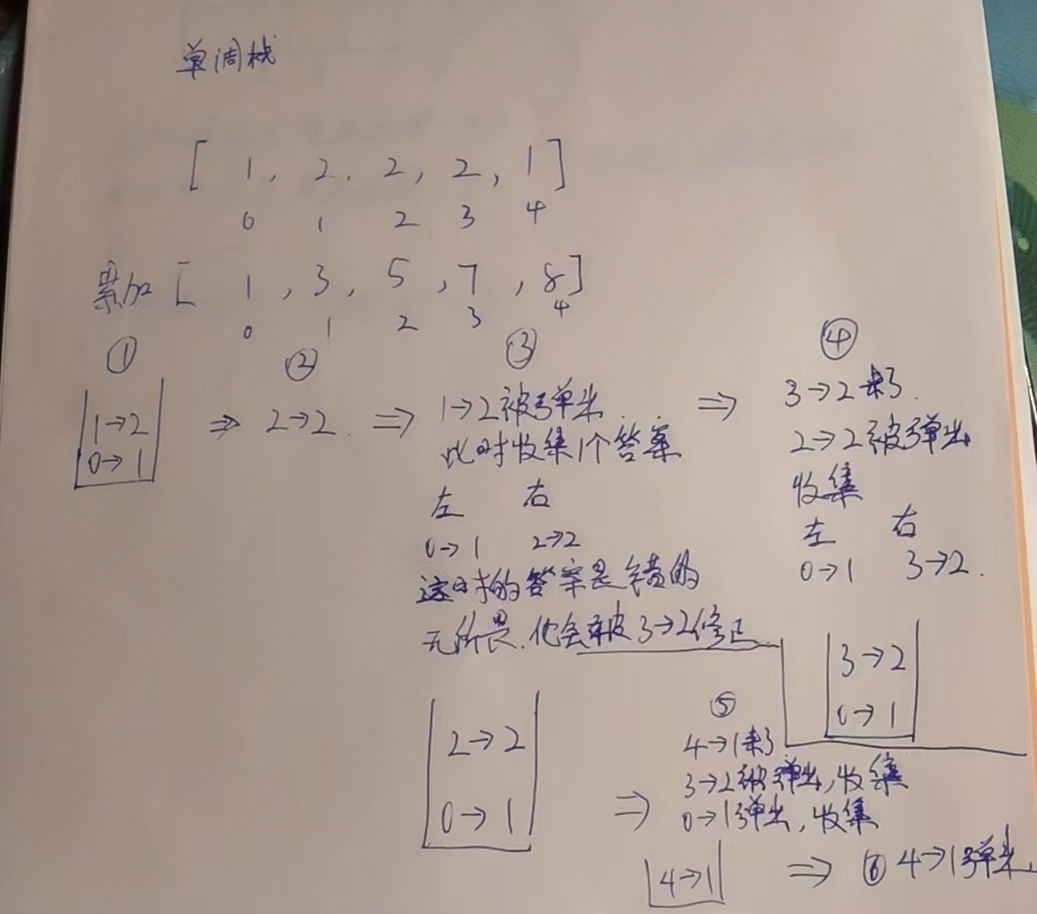 单调栈
[ 1, 2, 2, 2, 1 ]
0 1 2 3 4
累加 [ 1, 3, 5, 7, 8 ]
0 1 2 3 4
① ② ③ ④
1→2
0→1
⇒ 2→2. ⇒
1→2被弹出.
此时收集1个答案
左 右
0→1 2→2
这时的答案是错的
无所畏.他会被3→2修正
⇒
3→2来了.
2→2被弹出
收集
左 右
0→1 3→2.
3→2
0→1
2→2
0→1
⇒
⑤
4→1来了
3→2被弹出,收集
0→1弹出,收集
4→1
⇒ ⑥ 4→1弹出.